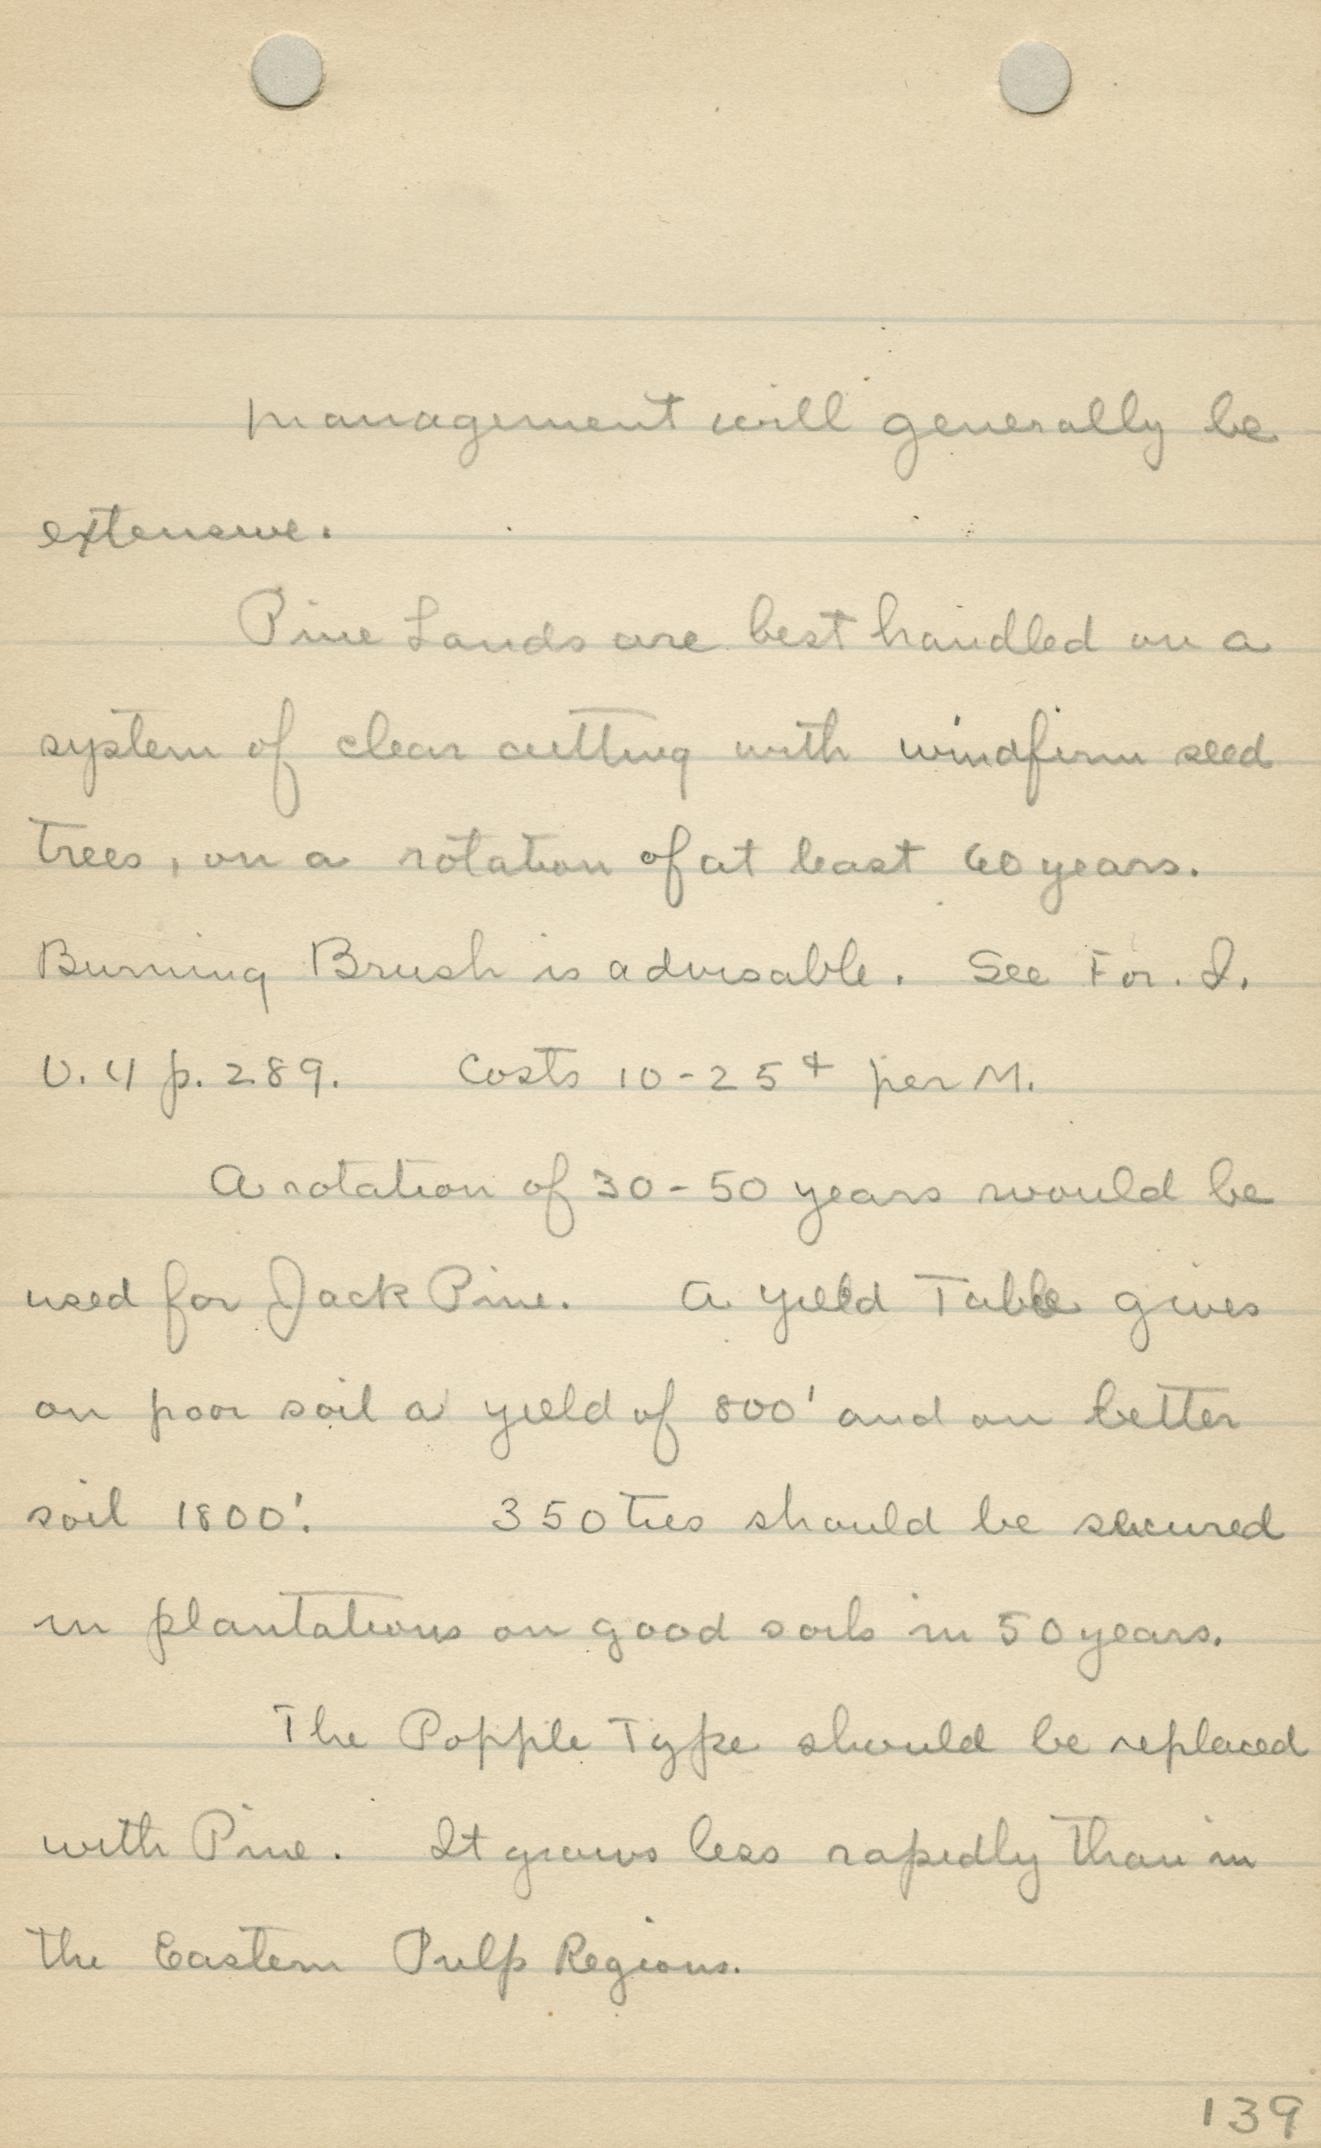 management will generally be
extensive.
Pine Lands are best handled on a
system of clear cutting with windfirm seed
trees, on a rotation of at least 60 years.
Burning Brush is advisable. See For. I.
V. 4 p. 289. Costs 10-25¢ per M.
A rotation of 30-50 years would be
used for Jack Pine. A yield Table gives
on poor soil a yield of 800' and on better
soil 1800'. 350 ties should be secured
in plantations on good soils in 50 years.
The Popple Type should be replaced
with Pine. It grows less rapidly than in
the Eastern Pulp Regions.
139